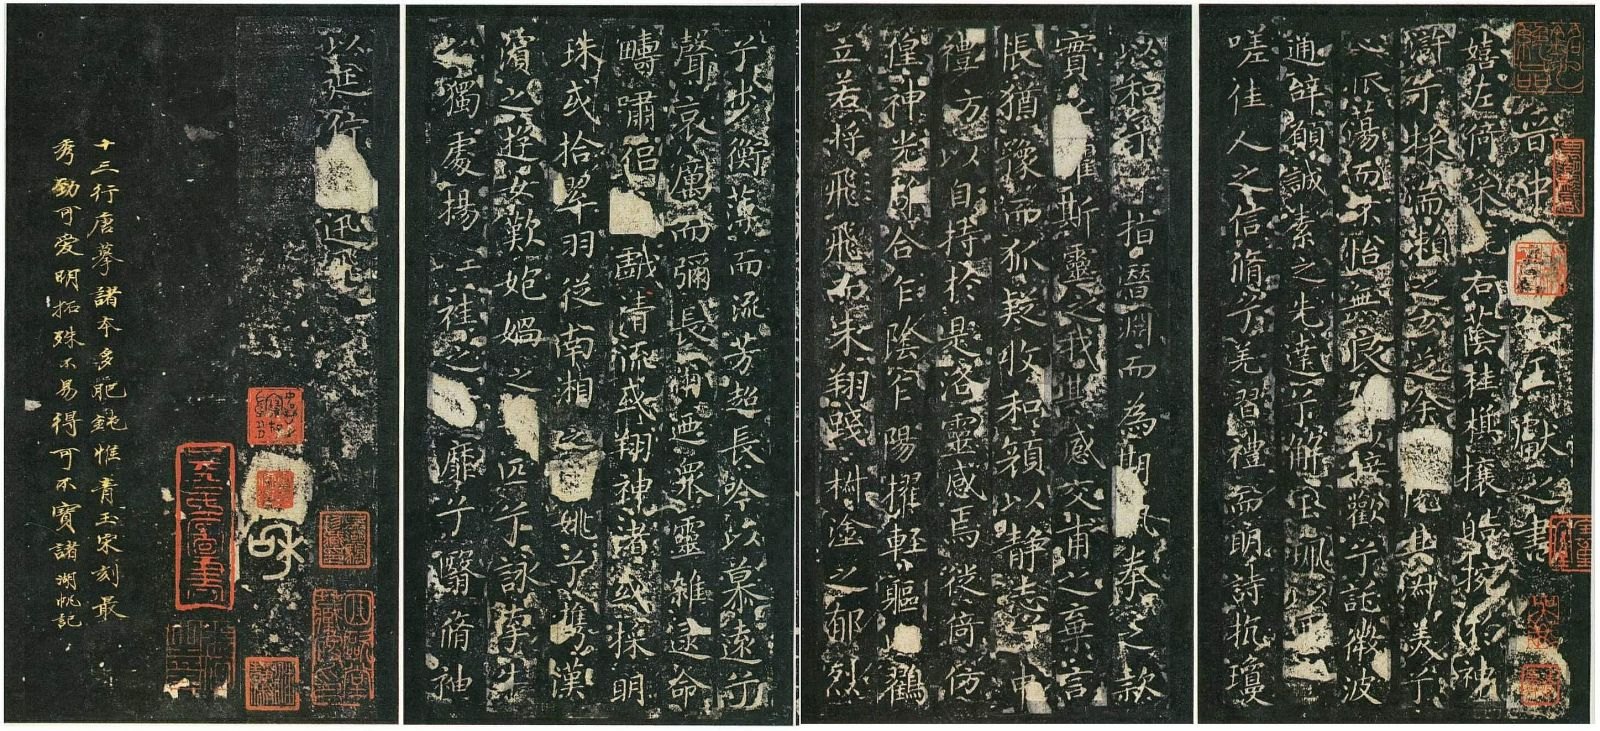 晉中王獻之書
嬉左倚采旄右蔭桂旗攘皓捥於神
滸兮採湍瀨之玄芝余悅其淑美兮
心振蕩而不怡無良以接歡兮託微波
通辭願誠素之先達兮解玉珮以要
嗟佳人之信脩兮羌習禮而明詩抗瓊
以和予兮指潛淵而為期執拳之款
實懼斯靈之我欺感交甫之棄言
悵猶豫而狐疑收和顏以靜志兮申
禮防以自持於是洛靈感焉徙倚仿
偟神光離合乍陰乍陽擢輕軀鶴
立若將飛而未翔踐椒塗之郁烈
兮步衡薄而流芳超長吟以慕遠兮
聲哀厲而彌長爾迺眾靈雜遝命
疇嘯侶戲清流或翔神渚或採明
珠或拾翠羽從南湘之姚兮攜漢
濱之遊女歎匏媧之匹兮詠牽牛
之獨處揚袿之靡兮翳脩袖
以延佇迅飛
十三行唐摹諸本多肥鈍惟青玉宋刻最
秀勁可愛明拓殊不易得可不寶諸湖帆記